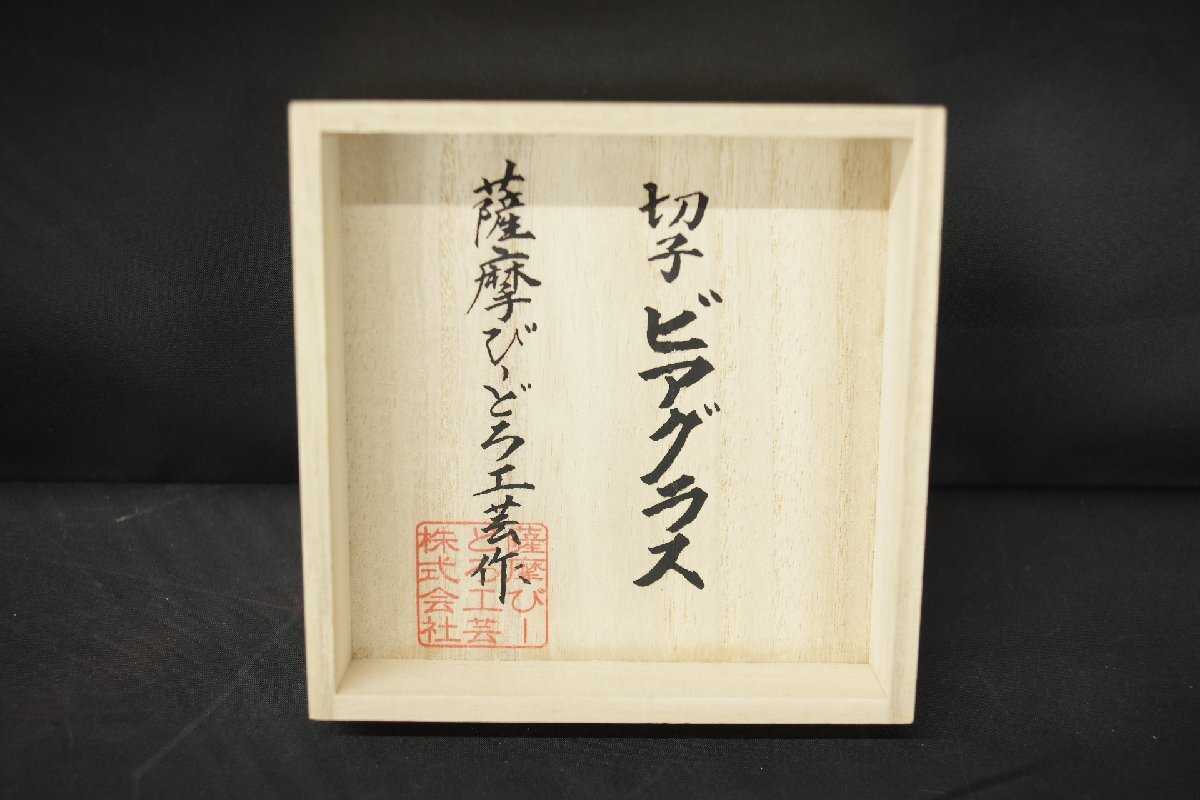 切子 ビアグラス
薩摩びーどろ工芸作
薩摩びー
どろ工芸
株式会社